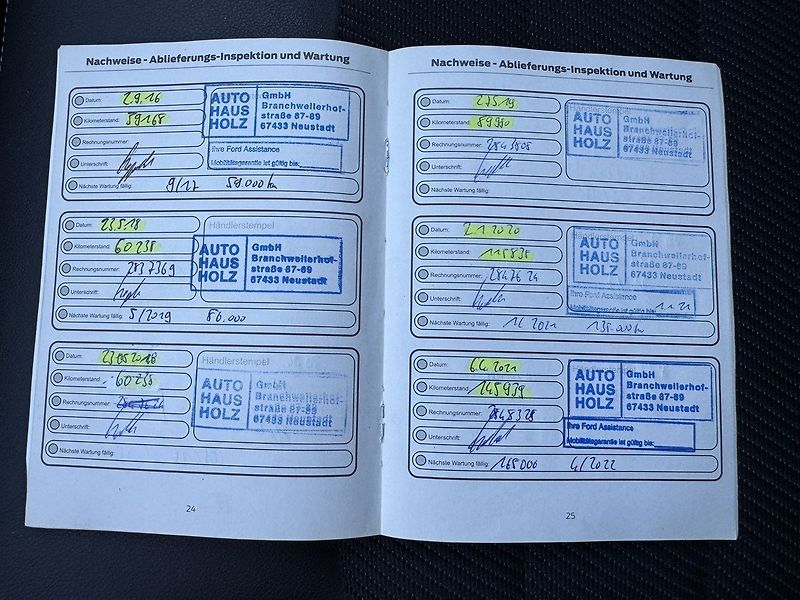 Nachweise - Ablieferungs-Inspektion und Wartung
Datum: 2.9.16
Kilometerstand: 39168
Rechnungsnummer:
Unterschrift:
AUTO HAUS HOLZ
GmbH
Branchweilerhof-
straße 87-89
67433 Neustadt
Ihre Ford Assistance
Mobilitätsgarantie ist gültig bis:
Nächste Wartung fällig: 9/17 59.000 km
Datum: 23.5.18
Kilometerstand: 60235
Rechnungsnummer: 2837369
Unterschrift:
Händlerstempel
AUTO HAUS HOLZ
GmbH
Branchweilerhof-
straße 87-89
67433 Neustadt
Nächste Wartung fällig: 5/2019 80.000
Datum: 23.05.2018
Kilometerstand: 60235
Rechnungsnummer:
Unterschrift:
Händlerstempel
AUTO HAUS HOLZ
GmbH
Branchweilerhof-
straße 87-89
67433 Neustadt
Nächste Wartung fällig:
24
Nachweise - Ablieferungs-Inspektion und Wartung
Datum: 27.5.19
Kilometerstand: 89980
Rechnungsnummer: 2843808
Unterschrift:
Händlerstempel
AUTO HAUS HOLZ
GmbH
Branchweilerhof-
straße 87-89
67433 Neustadt
Nächste Wartung fällig:
Datum: 2.1.2020
Kilometerstand: 115835
Rechnungsnummer: 2847624
Unterschrift:
Händlerstempel
AUTO HAUS HOLZ
GmbH
Branchweilerhof-
straße 87-89
67433 Neustadt
Ihre Ford Assistance
Mobilitätsgarantie ist gültig bis: 1.21
Nächste Wartung fällig: 1/2021 135.000 km
Datum: 6.4.2021
Kilometerstand: 145939
Rechnungsnummer: 2848328
Unterschrift:
AUTO HAUS HOLZ
GmbH
Branchweilerhof-
straße 87-89
67433 Neustadt
Ihre Ford Assistance
Mobilitätsgarantie ist gültig bis:
Nächste Wartung fällig: 165000 4/2022
25